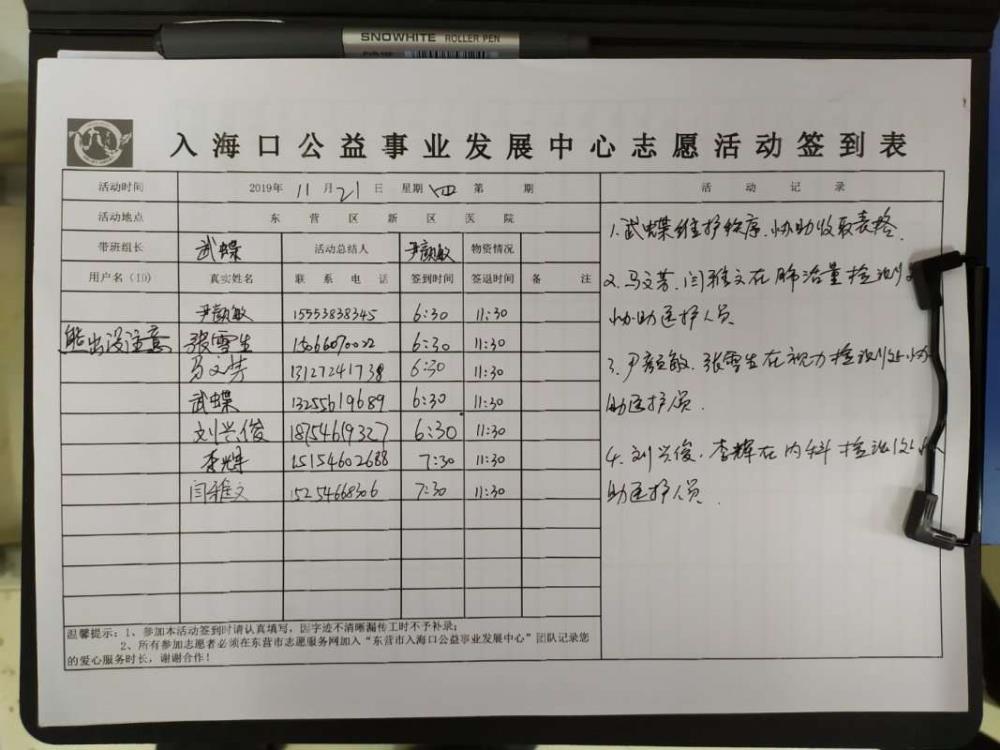 SNOWHITE ROLLER PEN
入海口公益事业发展中心志愿活动签到表
活动时间 2019年 11月 21日 星期 四 第 期 活动记录
活动地点 东营区新区医院
带班组长 武蝶 活动总结人 尹颜敏 物资情况
用户名(ID) 真实姓名 联系电话 签到时间 签退时间 备注
尹颜敏 15553838345 6:30 11:30
熊出没注意 张雪生 15066070022 6:30 11:30
马文芳 13127241738 6:30 11:30
武蝶 13255619689 6:30 11:30
刘兴俊 18754619327 6:30 11:30
李辉 15154602688 7:30 11:30
闫雅文 15254668306 7:30 11:30
1.武蝶维护秩序.协助收取表格.
2.马文芳.闫雅文在肺活量检测处
协助医护人员
3.尹颜敏.张雪生在视力检测处协
助医护人员.
4.刘兴俊.李辉在内科检测处协
助医护人员.
温馨提示：1、参加本活动签到时请认真填写，因字迹不清晰漏传工时不予补录；
2、所有参加志愿者必须在东营市志愿服务网加入“东营市入海口公益事业发展中心”团队记录您
的爱心服务时长，谢谢合作！